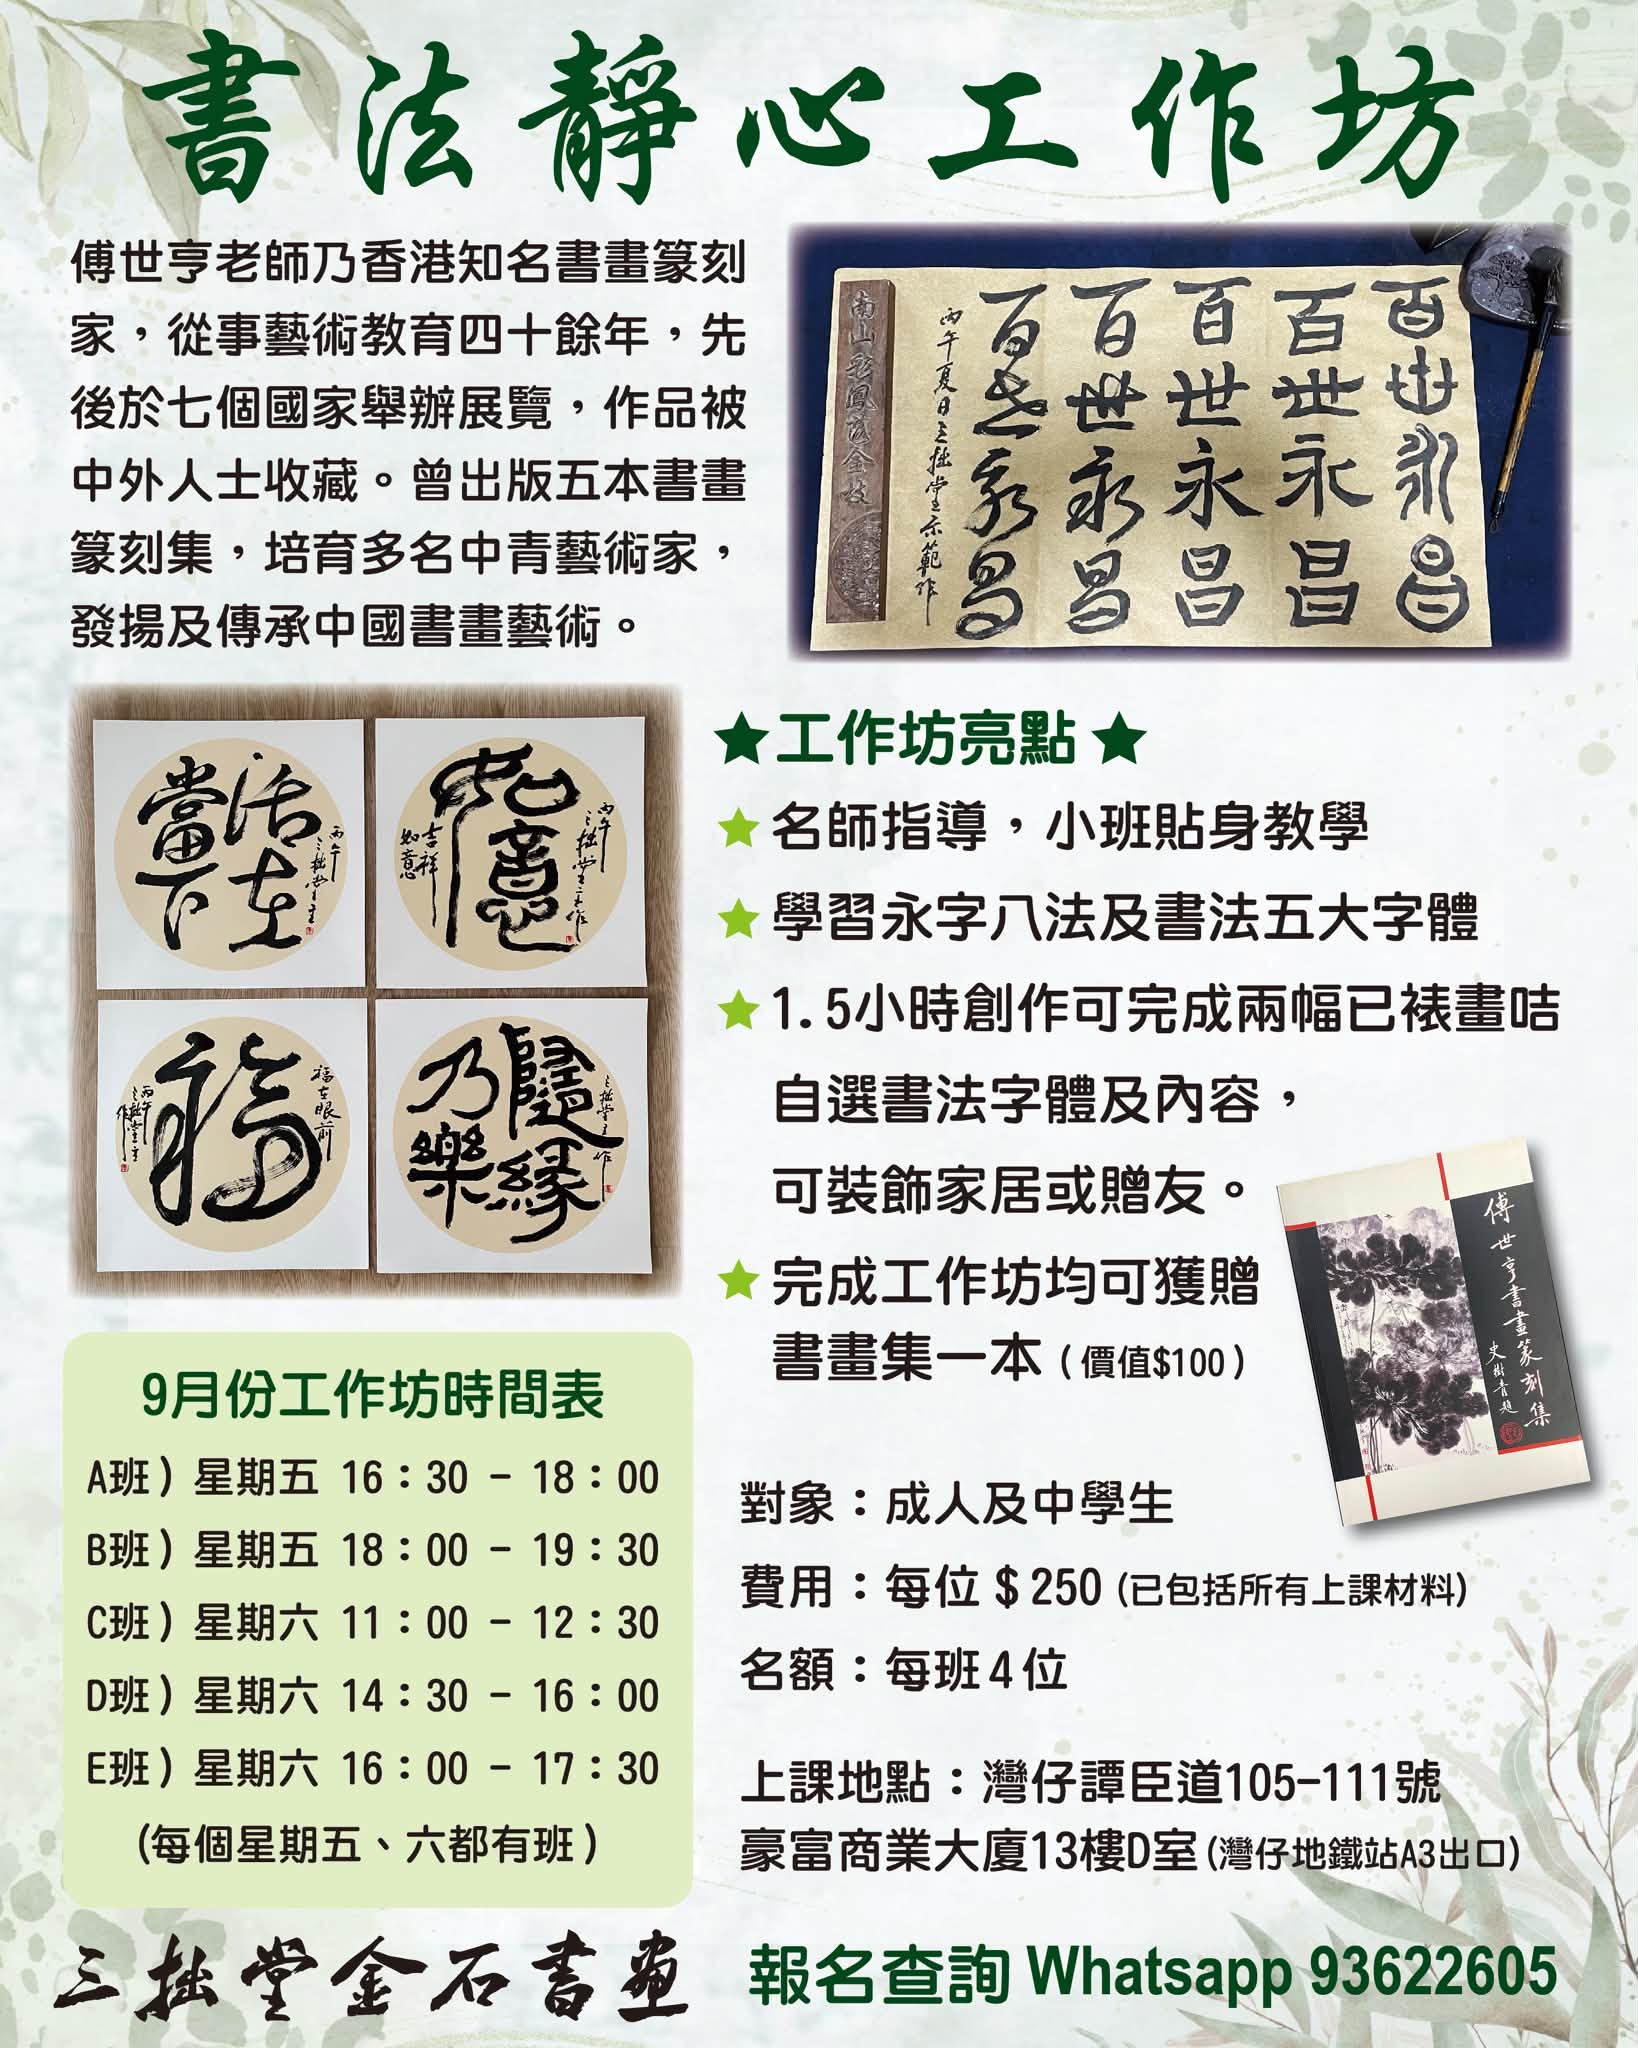 書法靜心工作坊
傅世亨老師乃香港知名書畫篆刻
家，從事藝術教育四十餘年，先
後於七個國家舉辦展覽，作品被
中外人士收藏。曾出版五本書畫
篆刻集，培育多名中青藝術家，
發揚及傳承中國書畫藝術。
百世永昌
百世永昌
百世永昌
百世永昌
百世永昌
丙午夏日三拙堂示範作
南山彩鳳
活在
當下
丙午三拙堂主
如意
吉祥
如意
丙午三拙堂主作
福
福在眼前
丙午三拙堂主作
隨緣
乃樂
三拙堂主作
★工作坊亮點★
★名師指導，小班貼身教學
★學習永字八法及書法五大字體
★1.5小時創作可完成兩幅已裱畫咭
自選書法字體及內容，
可裝飾家居或贈友。
★完成工作坊均可獲贈
書畫集一本（價值$100）
傅世亨書畫篆刻集
史樹青題
9月份工作坊時間表
A班）星期五 16：30 - 18：00
B班）星期五 18：00 - 19：30
C班）星期六 11：00 - 12：30
D班）星期六 14：30 - 16：00
E班）星期六 16：00 - 17：30
（每個星期五、六都有班）
對象：成人及中學生
費用：每位＄250（已包括所有上課材料）
名額：每班4位
上課地點：灣仔譚臣道105-111號
豪富商業大廈13樓D室（灣仔地鐵站A3出口）
三拙堂金石書畫
報名查詢 Whatsapp 93622605